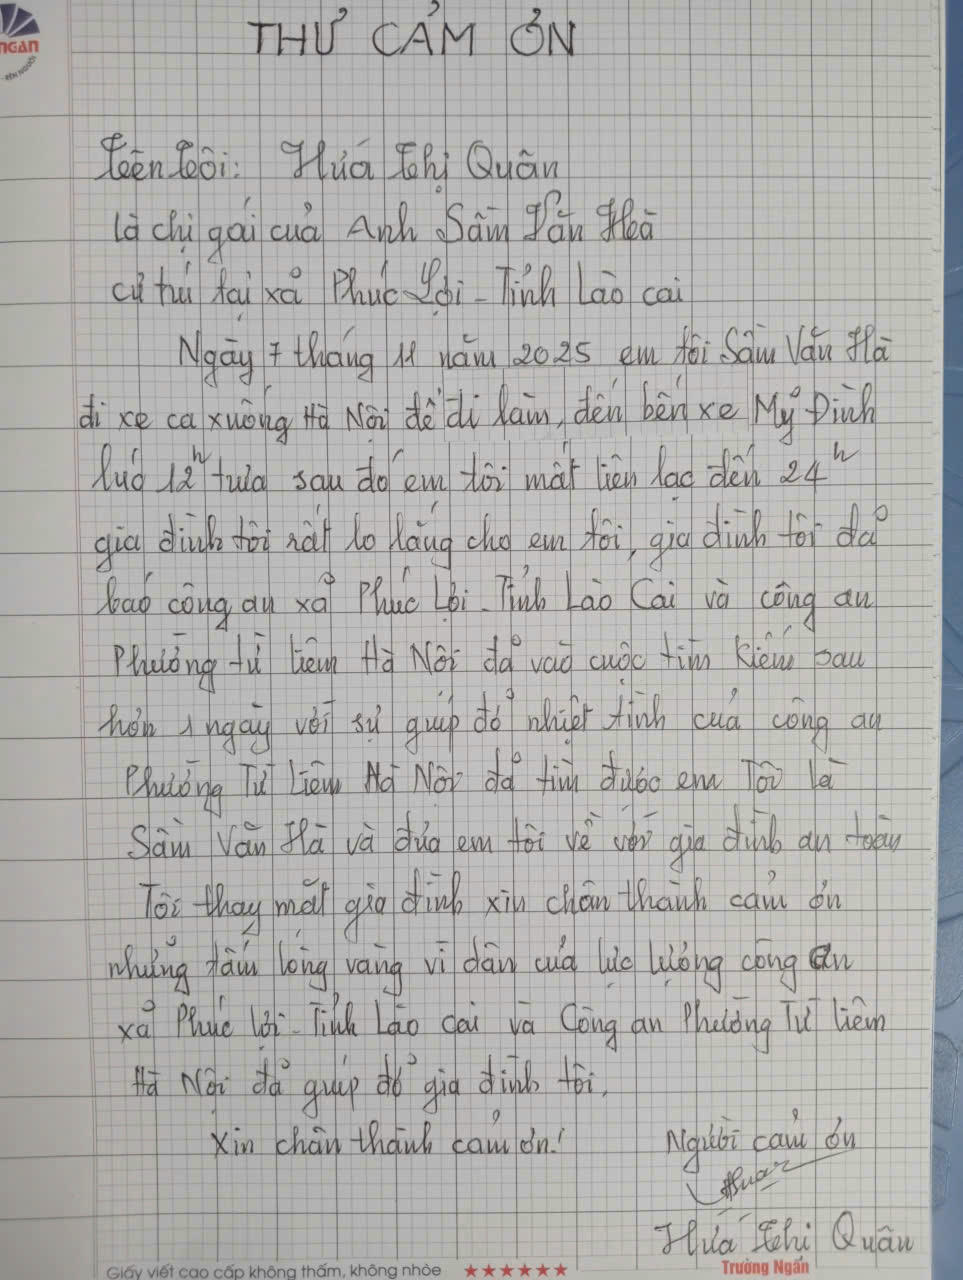 NGAN
RÈN NGƯỜI
THƯ CẢM ƠN
Tên tôi: Hứa Thị Quân
là chị gái của Anh Sầm Văn Hà
cư trú tại xả Phúc Lợi - Tỉnh Lào cai
Ngày 7 tháng 11 năm 2025 em tôi Sầm Văn Hà
đi xe ca xuống Hà Nội để đi làm, đến bến xe Mỹ Đình
lúc 12h trưa sau đó em tôi mất liên lạc đến 24h
gia đình tôi rất lo lắng cho em tôi, gia đình tôi đả
báo công an xả Phúc Lợi - Tỉnh Lào Cai và công an
Phường từ liêm Hà Nội đả vào cuộc tìm kiếm sau
hơn 1 ngày với sự giúp đở nhiệt tình của công an
Phường Từ Liêm Hà Nội đả tìm được em Tôi là
Sầm Văn Hà và đưa em tôi về với gia đình an toàn
Tôi thay mặt gia đình xin chân thành cảm ơn
nhửng tấm lòng vàng vì dân của lực lượng công an
xả Phúc Lợi - Tỉnh Lào cai và Công an Phường Từ liêm
Hà Nội đả giúp đở gia đình tôi.
Xin chân thành cảm ơn!
Người cảm ơn
Hứa Thị Quân
Giấy viết cao cấp không thấm, không nhòe ★★★★★★ Trường Ngân